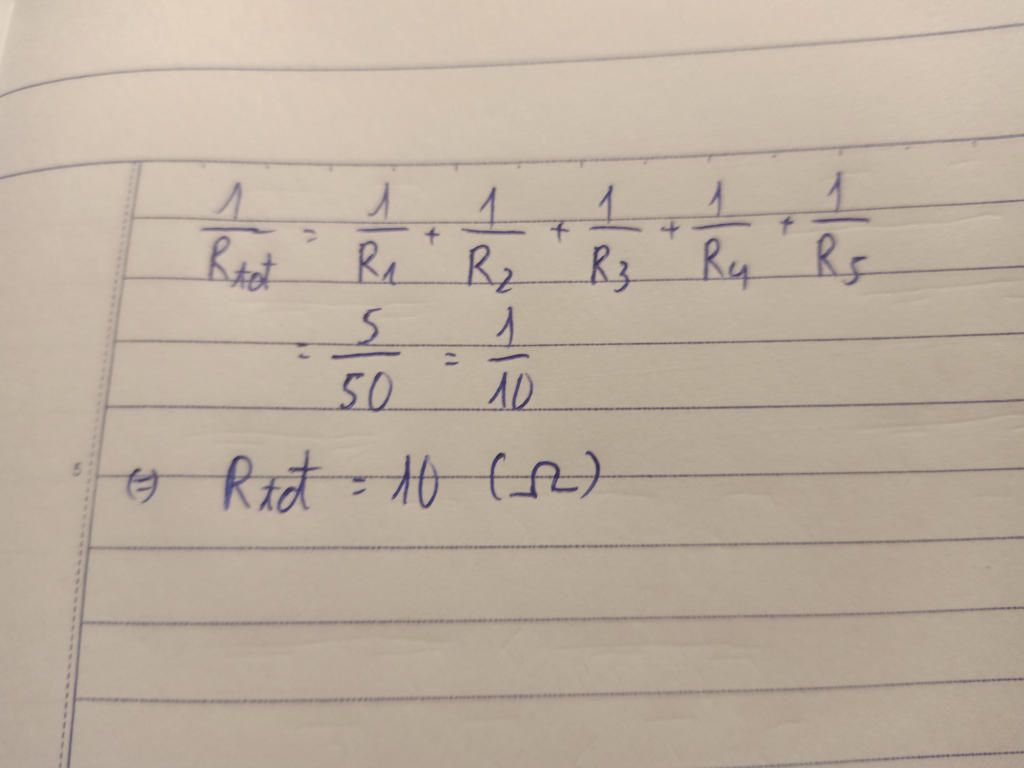 1/R_tot = 1/R_1 + 1/R_2 + 1/R_3 + 1/R_4 + 1/R_5
= 5/50 = 1/10
5
⇔ R_tot = 10 (Ω)